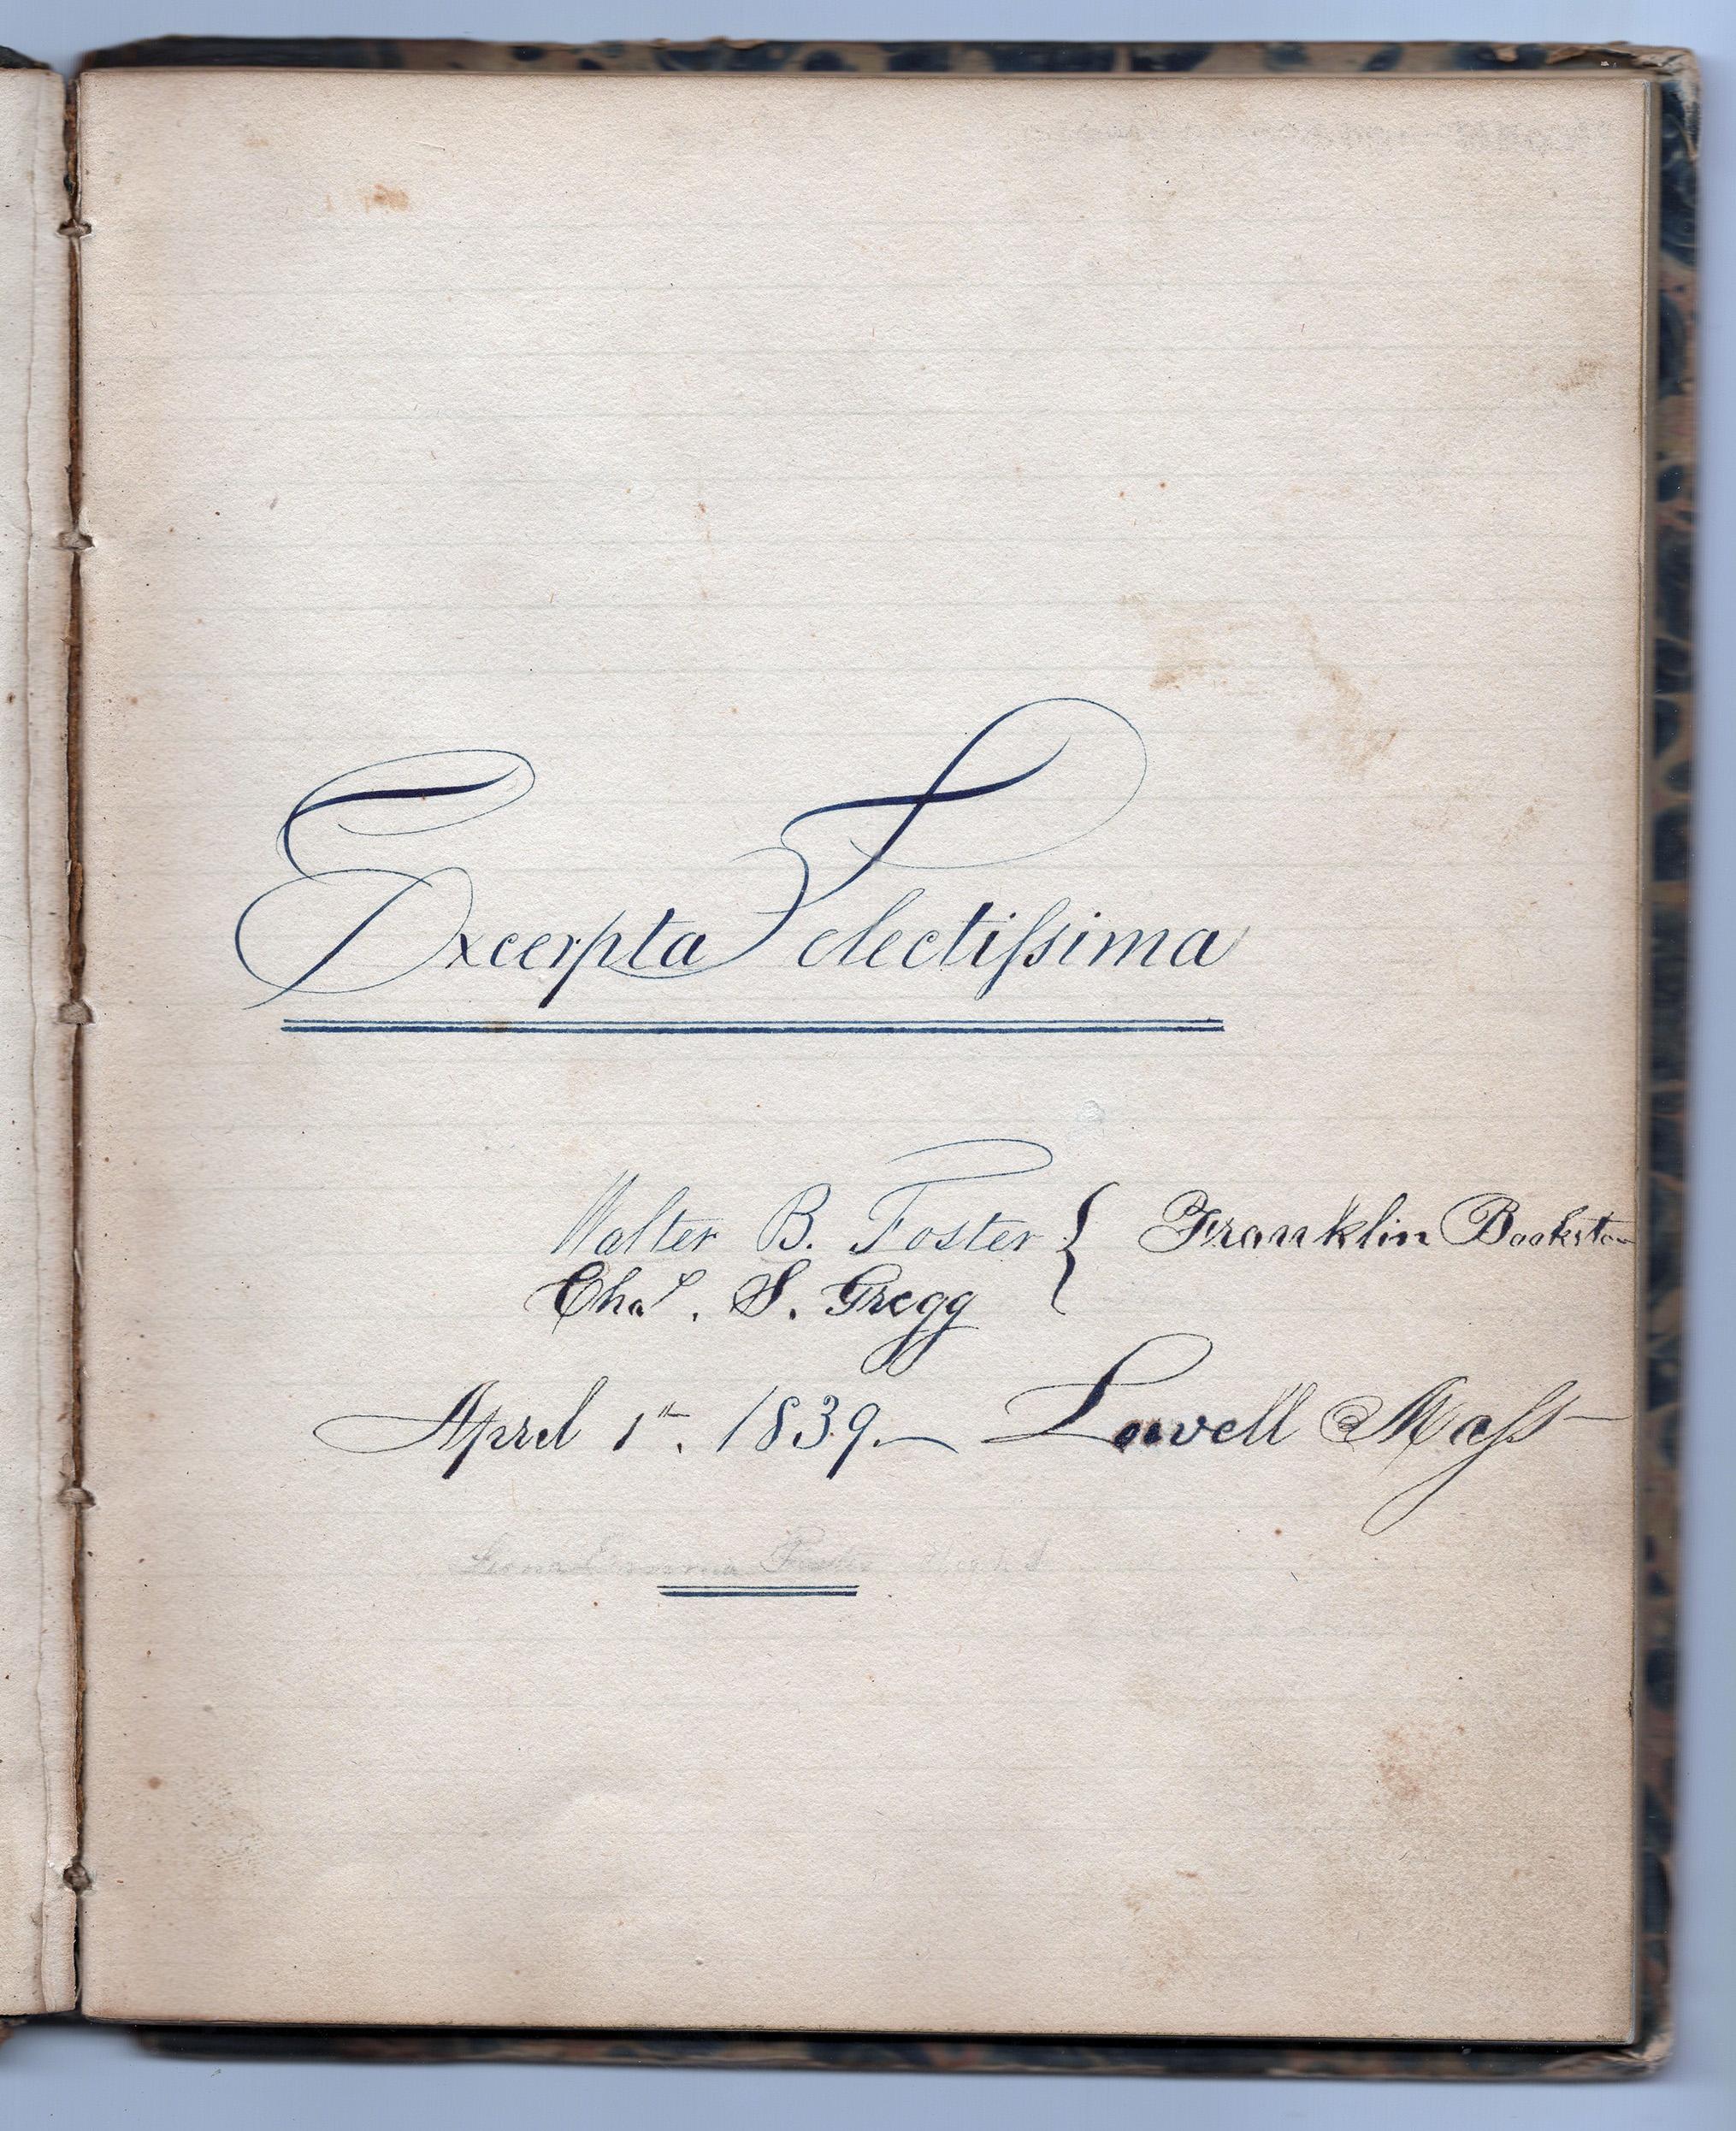 Excerpta Selectiſsima
Walter B. Foster { Franklin Bookstore
Chaˢ. S. Gregg
April 1ˢᵗ. 1839.— Lowell Maſs—
Foster